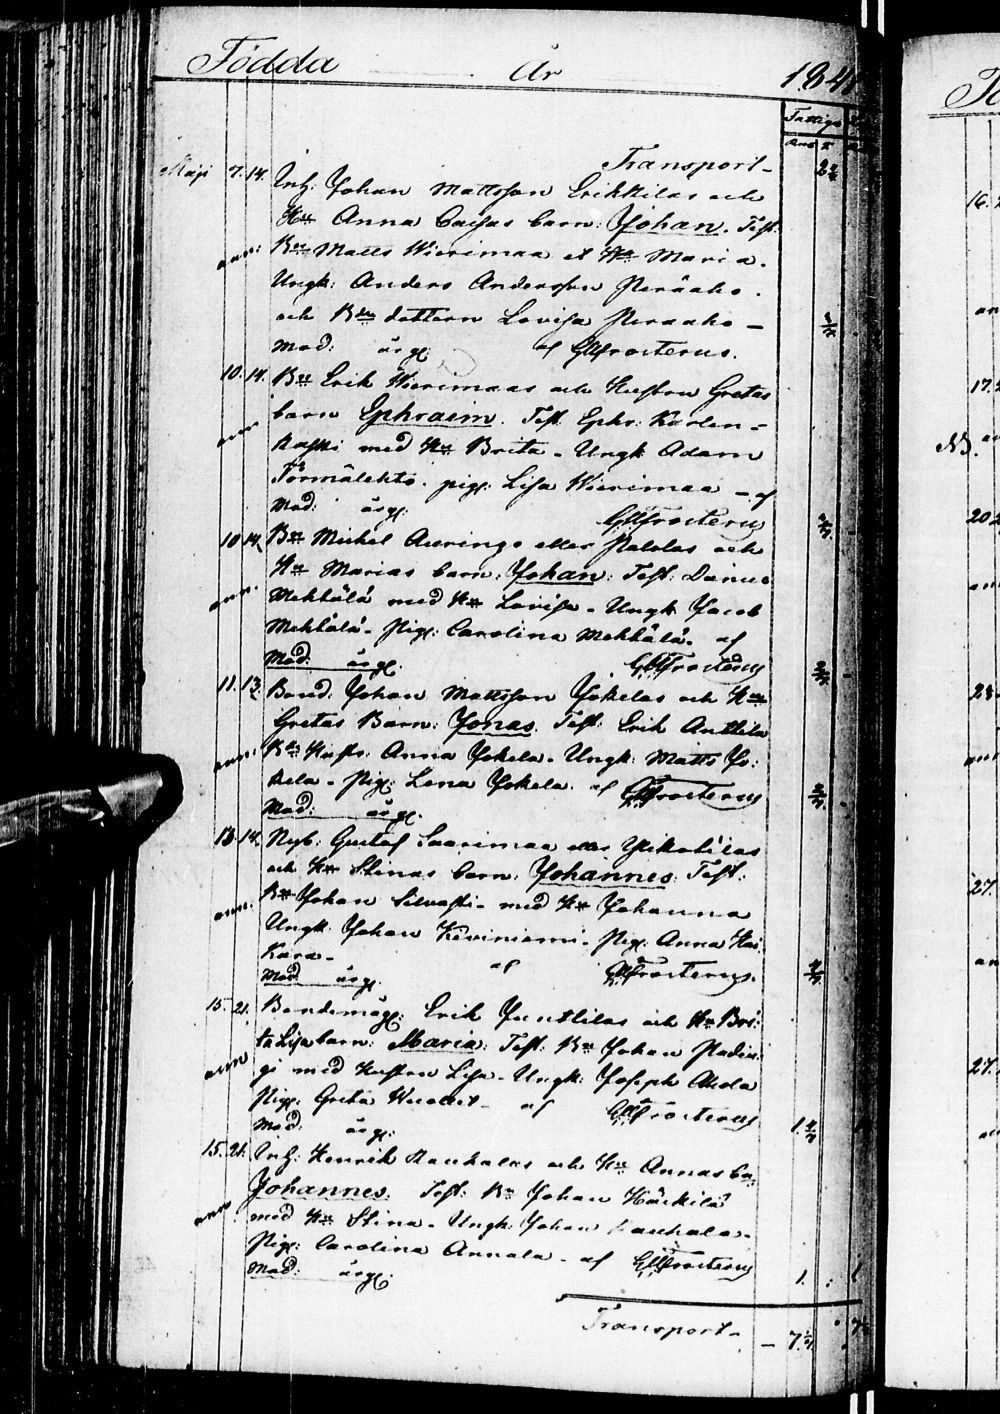 Födda År 184
Fattige
Transport-
Maji 7. 14. Inh: Johan Mattsson Erikkilas och
Hu Anna Caisas barn: Johan. Test:
Bn Matts Wierimaa et Hu Maria.
Ungk: Anders Andersson Peräaho.
och Bde dottern Lovisa Peraaho -
Mod: årgl: af GMFrosterus.
10. 14. Bn Erik Wierimaas och Hustru Gretas
barn Ephraim. Test. Ephr: Karlen-
koski med Hu Brita - Ungk Adam
Törmälehto. pig: Lisa Wierimaa - af
Mod: årgl: GMFrosterus
10 14. Bn Michel Aurings eller Palolas och
Hu Marias barn: Johan: Test: Daniel
Mehtälä med Hu Lovisa - Ungk Jacob
Mehtälä - Pig: Carolina Mehtälä. af
Mod: årgl: GMFrosterus
11. 13. Bond: Johan Mattsson Jokelas och Hu
Gretas Barn: Jonas. Test: Erik Anttila
Bde Hustr: Anna Jokela - Ungk: Matts Jo:
kela - Pig: Lena Jokela. af GMFrosterus
Mod: årgl.
13. 14. Nyb: Gustaf Saarimaa eller
och Hu Stinas barn: Johannes: Test:
Bn Johan Silvasti - med Hu Johanna
Ungk: Johan Keviniemi - Pig: Anna
Kara -
Mod årgl. af GMFrosterus.
15. 21. Bondemåg: Erik Junttilas och Hu Bri:
ta Lisa barn: Maria: Test: Bn Johan
gi med Hustru Lisa - Ungk: Joseph Ahola
Pig: Greta - af GMFrosterus
Mod: årgl: 1.
15. 21. Inh: Henrik Kauhalas och Hu Annas
Johannes. Test: Bn Johan Härkilä
med Hu Stina - Ungk: Johan Kauhala -
Pig: Carolina Annala - af GMFrosterus
Mod: årgl: 1. : 1
Transport -